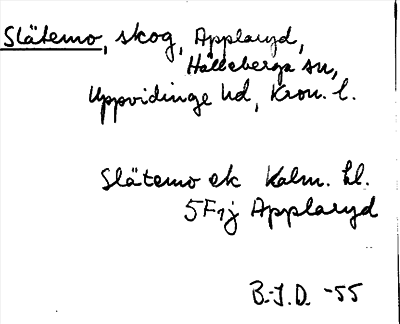 Slätemo, skog, Applaryd,
Hälleberga sn,
Uppvidinge hd, Kron. l.
Slätemo ek Kalm. hl.
5F1j Applaryd
B.-J.D. -55